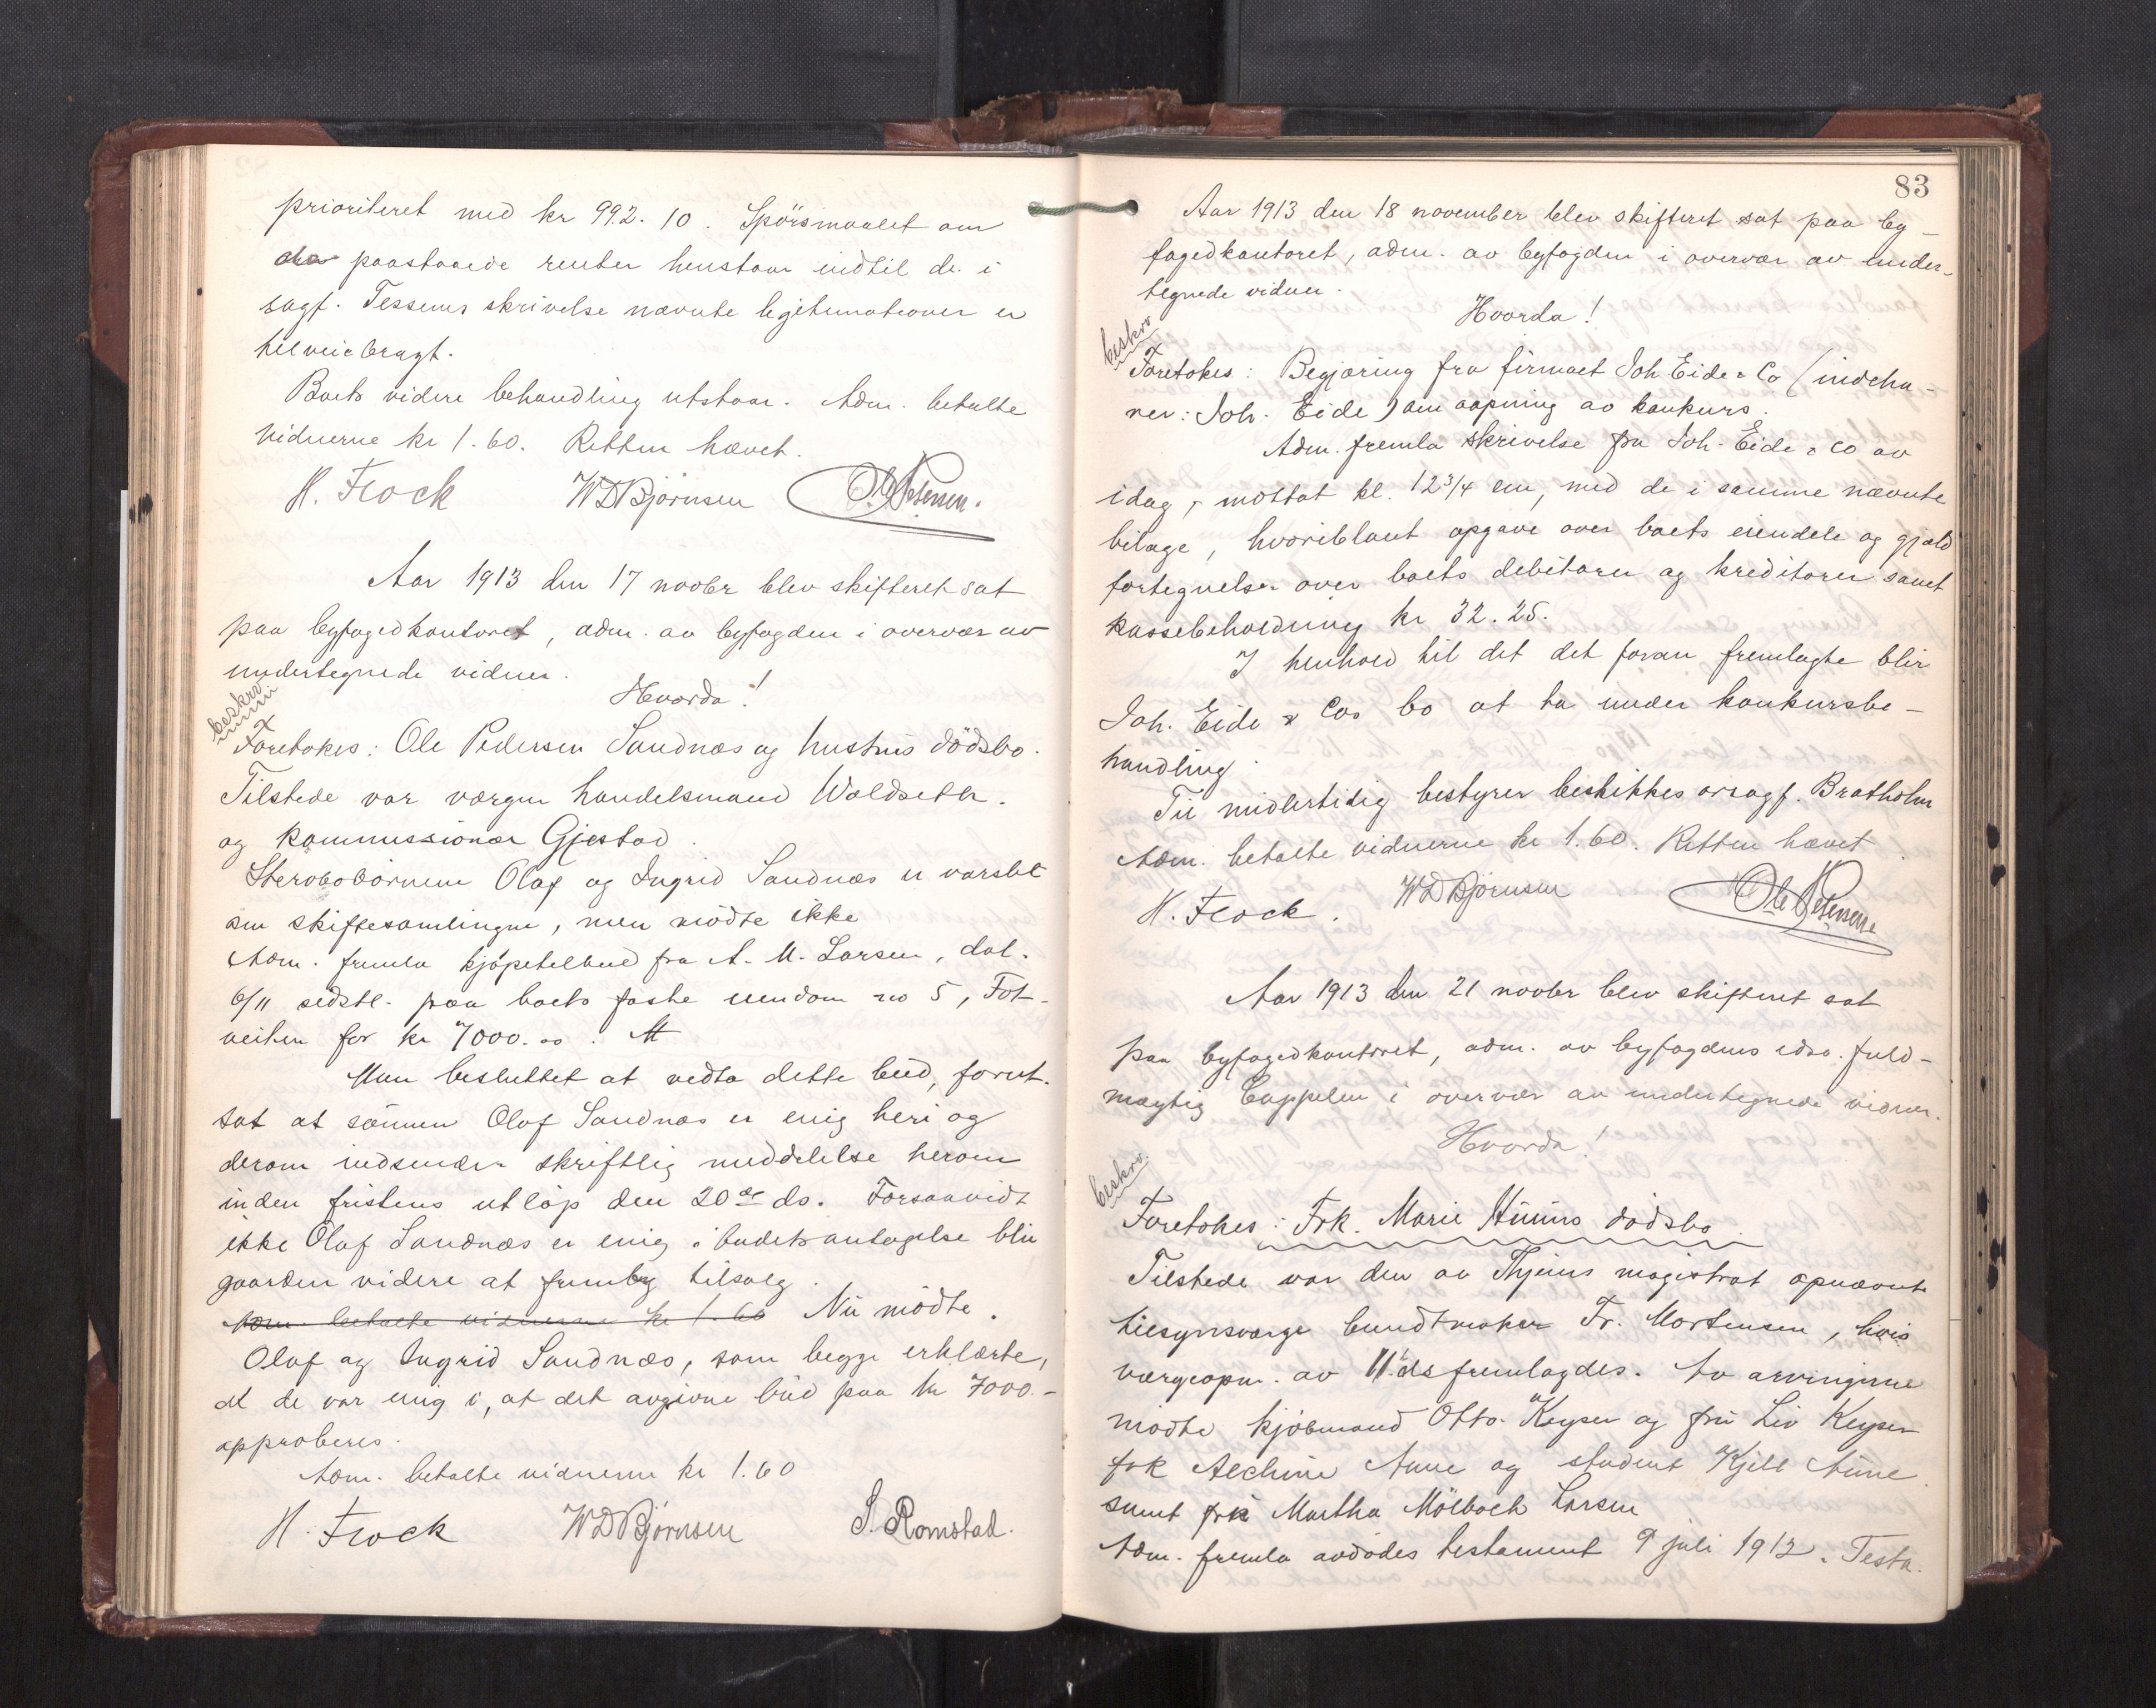 prioriteret med kr 992.10. Spörsmaalet om
de paastaaede renter henstaar indtil de i
sagf. Tessems skrivelse nævnte legitimationer er
tilveiebragt.
Boets videre behandling utstaar. Adm. betalte
vidnerne kr 1.60. Retten hævet.
H. Flock WDBjörnsen Ole Petersen.
Aar 1913 den 17 novbr blev skifteret sat
paa byfogedkontoret, adm. av byfogden i overvær av
undertegnede vidner.
Hvorda!
beskrv
Foretokes: Ole Pedersen Sandnæs og hustrus dödsbo.
Tilstede var værgen handelsmand Woldseth.
og kommissionær Gjestad.
Stervbobörnene Olaf og Ingrid Sandnæs er varslet
om skiftesamlingen, men mödte ikke
Adm. fremla kjöpetilbud fra A. M. Larsen, dat.
6/11 sidstl. paa boets faste eiendom no 5, Tot-
veiten for kr 7000.00.
Man besluttet at vedta dette bud, forut-
sat at sönnen Olaf Sandnæs er enig heri og
derom indsender skriftlig meddelelse herom
inden fristens utlöp den 20de ds. Forsaavidt
ikke Olaf Sandnæs er enig i budets antagelse blir
gaarden videre at fremby tilsalg.
Adm. betalte vidnerne kr 1.60 Nu mödte.
Olaf og Ingrid Sandnæs, som begge erklærte,
at de var enig i, at det avgivne bud paa kr 7000.-
approberes.
Adm. betalte vidnerne kr 1.60
H. Flock WDBjörnsen S. Romstad.
83
Aar 1913 den 18 november blev skifteret sat paa by-
fogedkontoret, adm. av byfogden i overvær av under-
tegnede vidner.
Hvorda!
beskrv
Foretokes: Begjæring fra firmaet Joh Eide & Co (indeha-
ver: Joh. Eide) om aapning av konkurs.
Adm. fremla skrivelse fra Joh. Eide & Co av
idag, mottat kl. 12 3/4 em, med de i samme nævnte
bilage, hvoriblant opgave over boets eiendele og gjæld
fortegnelse over boets debitorer og kreditorer samt
kassebeholdning kr 32.25.
I henhold til det det foran fremlagte blir
Joh. Eide & Cos bo at ta under konkursbe-
handling.
Til midlertidig bestyrer beskikkes orsagf. Bratholm
Adm. betalte vidnerne kr 1.60. Retten hævet.
H. Flock. WDBjörnsen Ole Petersen
Aar 1913 den 21 novbr blev skifteret sat
paa byfogedkontoret, adm. av byfogdens edsv. fuld-
mægtig Cappelen i overvær av undertegnede vidner.
Hvorda!
beskrv.
Foretokes: Frk. Marie dödsbo.
Tilstede var den av Thjems magistrat opnævnte
tilsynsværge bundtmaker Fr. Mortensen, hvis
værgeopn. av 11. ds fremlagdes. Av arvingerne
mödte kjöbmand Otto Keyser og fru Liv Keyser
frk Alchine Aune og student Kjell Aune
samt frk Martha Mölbach Larsen
Adm. fremla avdödes testament 9 juli 1912. Testa.